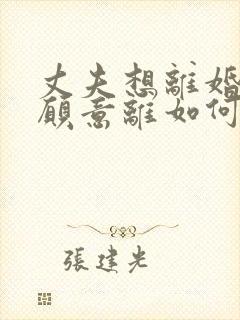 丈夫想離婚
願意離如何
張建光